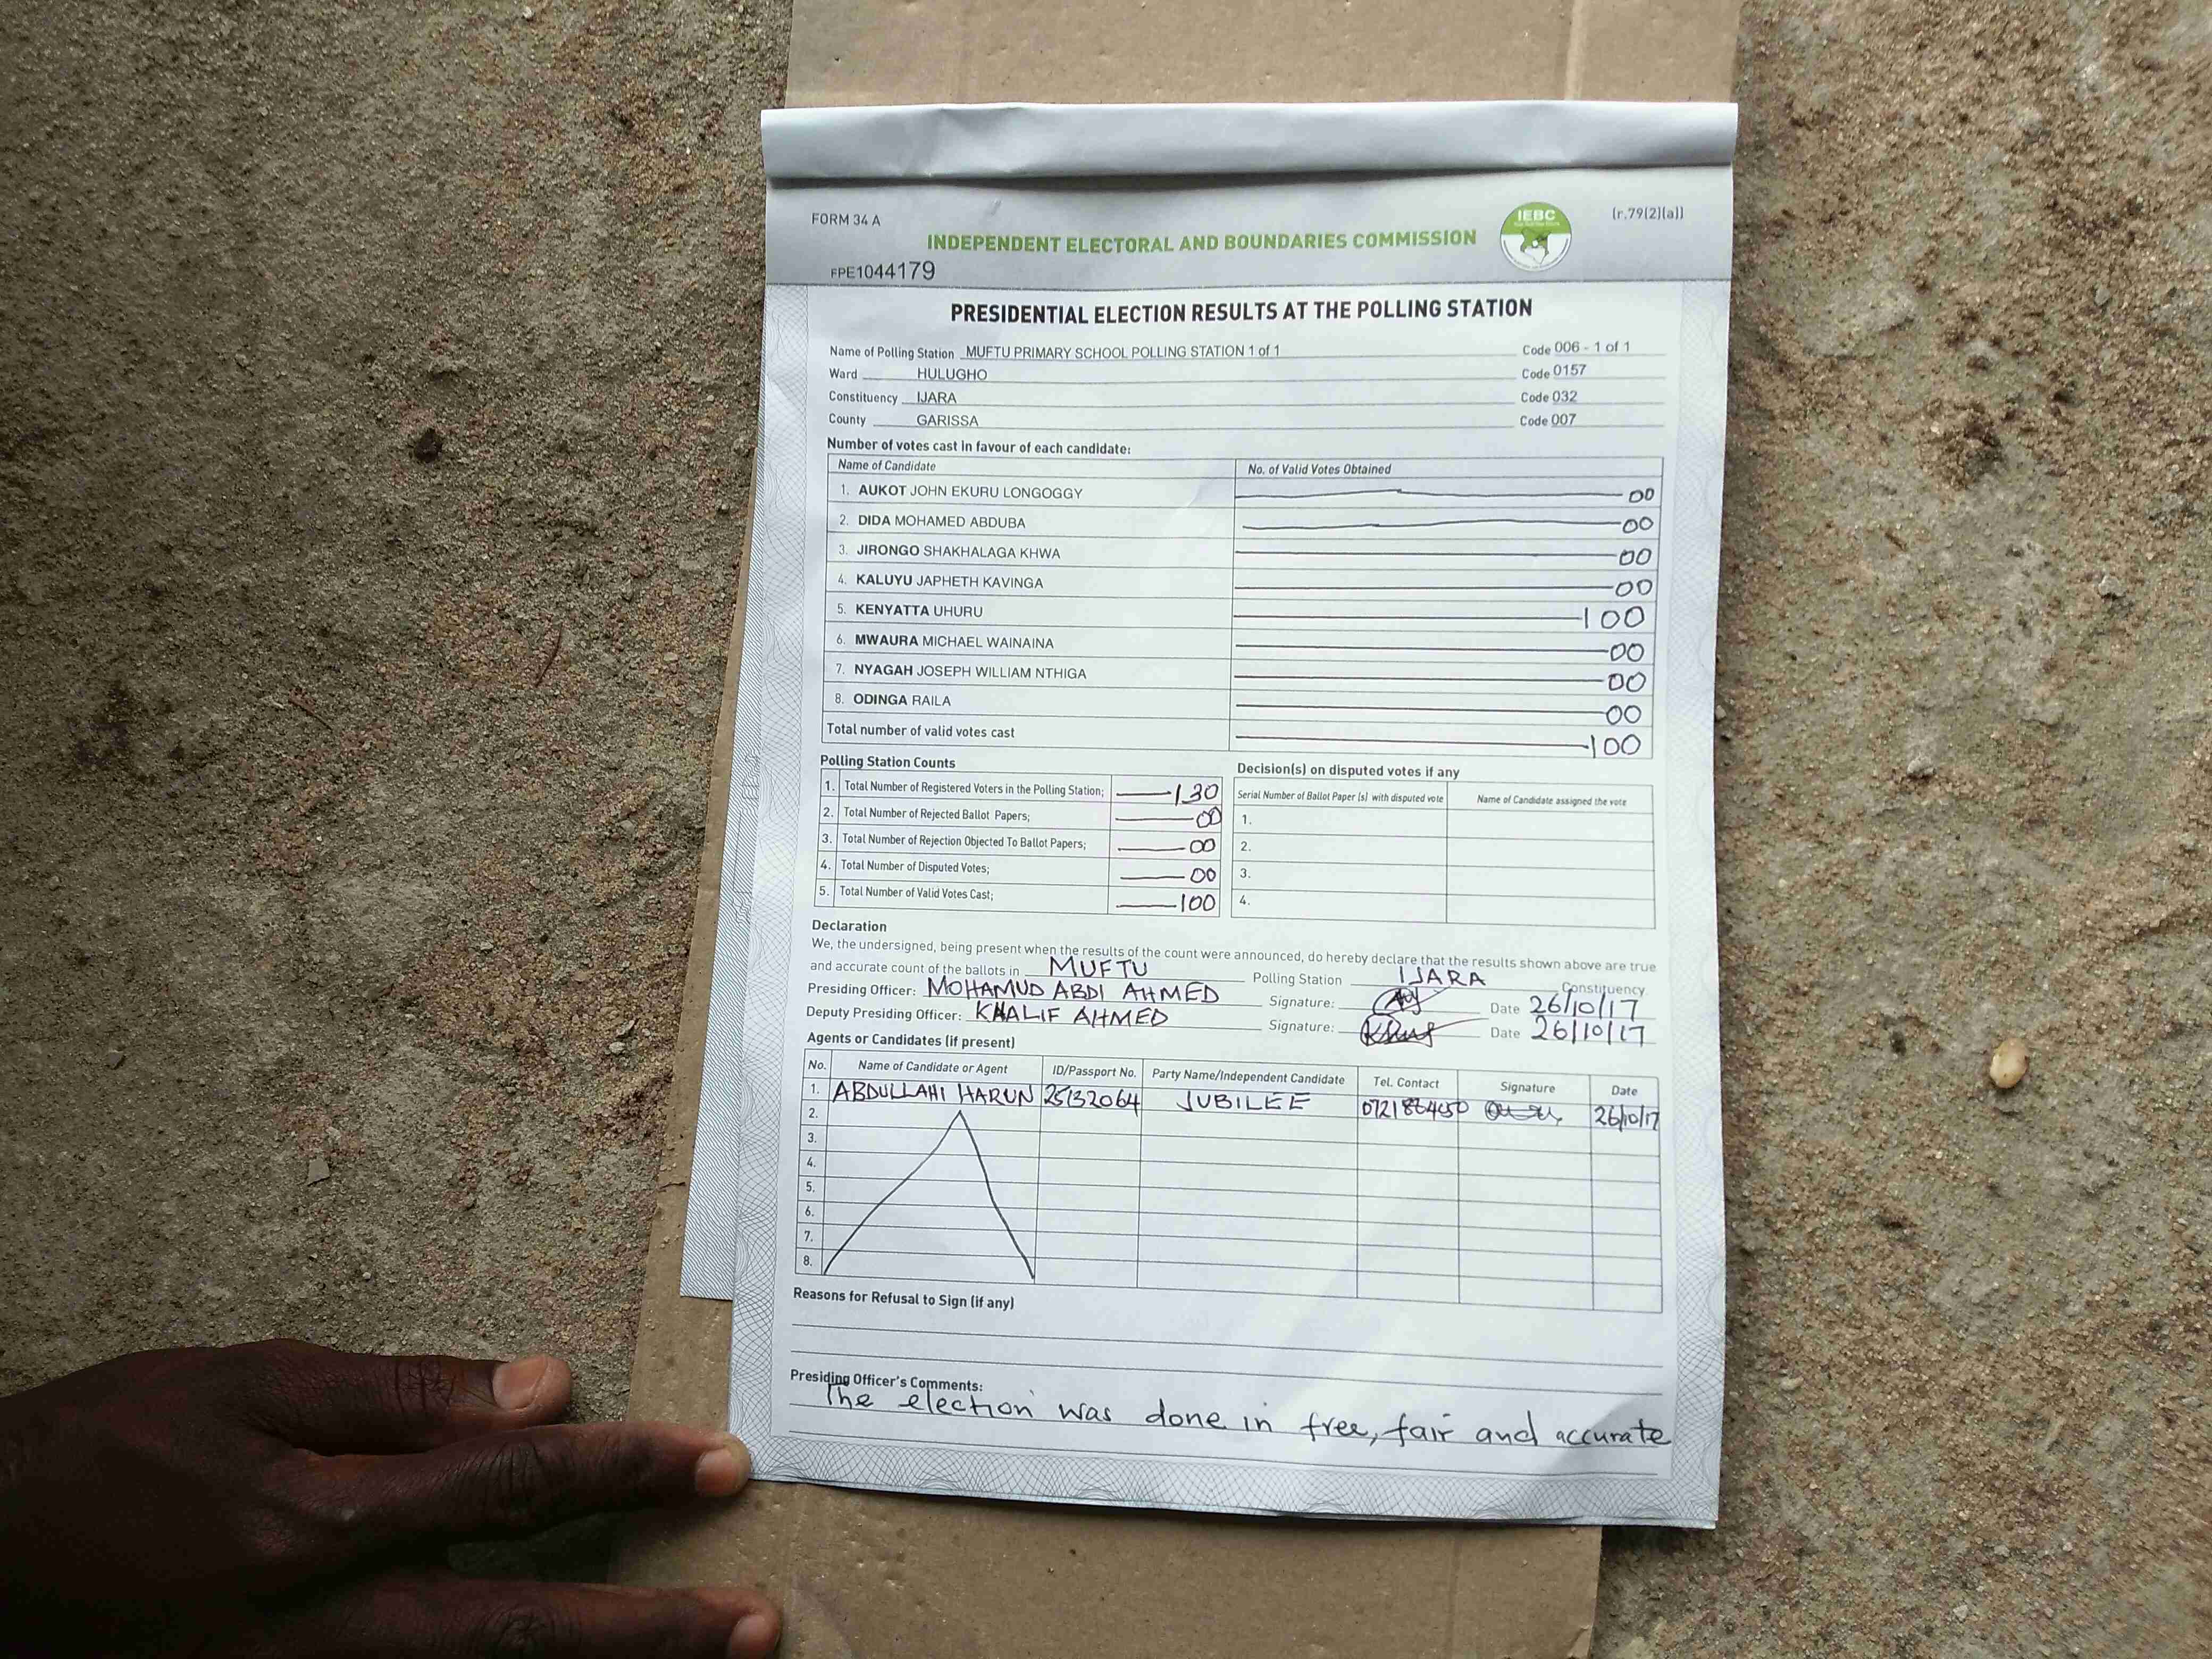 FORM 34 A
IEBC
(r.79(2)(a))
INDEPENDENT ELECTORAL AND BOUNDARIES COMMISSION
FPE1044179
PRESIDENTIAL ELECTION RESULTS AT THE POLLING STATION
Name of Polling Station MUFTU PRIMARY SCHOOL POLLING STATION 1 of 1 Code 006 - 1 of 1
Ward HULUGHO Code 0157
Constituency IJARA Code 032
County GARISSA Code 007
Number of votes cast in favour of each candidate:
Name of Candidate No. of Valid Votes Obtained
1. AUKOT JOHN EKURU LONGOGGY 00
2. DIDA MOHAMED ABDUBA 00
3. JIRONGO SHAKHALAGA KHWA 00
4. KALUYU JAPHETH KAVINGA 00
5. KENYATTA UHURU 100
6. MWAURA MICHAEL WAINAINA 00
7. NYAGAH JOSEPH WILLIAM NTHIGA 00
8. ODINGA RAILA 00
Total number of valid votes cast 100
Polling Station Counts
1. Total Number of Registered Voters in the Polling Station; 130
2. Total Number of Rejected Ballot Papers; 00
3. Total Number of Rejection Objected To Ballot Papers; 00
4. Total Number of Disputed Votes; 00
5. Total Number of Valid Votes Cast; 100
Decision(s) on disputed votes if any
Serial Number of Ballot Paper (s) with disputed vote Name of Candidate assigned the vote
1.
2.
3.
4.
Declaration
We, the undersigned, being present when the results of the count were announced, do hereby declare that the results shown above are true
and accurate count of the ballots in MUFTU Polling Station IJARA Constituency
Presiding Officer: MOHAMUD ABDI AHMED Signature: Date 26/10/17
Deputy Presiding Officer: KHALIF AHMED Signature: Date 26/10/17
Agents or Candidates (if present)
No. Name of Candidate or Agent ID/Passport No. Party Name/Independent Candidate Tel. Contact Signature Date
1. ABDULLAHI HARUN 25132064 JUBILEE 26/10/17
2.
3.
4.
5.
6.
7.
8.
Reasons for Refusal to Sign (if any)
Presiding Officer's Comments:
The election was done in free, fair and accurate